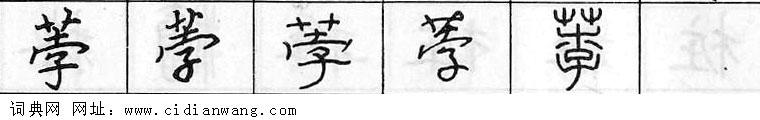 荸 荸 荸 荸 荸
词典网 网址：www.cidianwang.com